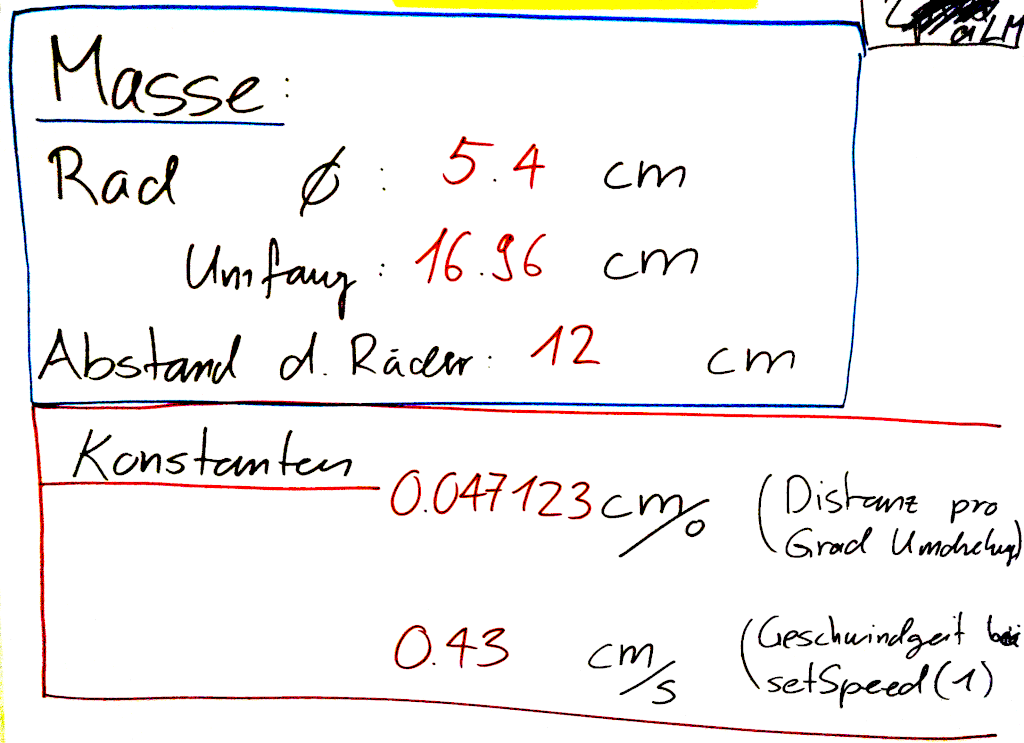 aLM
Masse:
Rad ∅: 5.4 cm
Umfang: 16.96 cm
Abstand d. Räder: 12 cm
Konstanten
0.047123 cm/° (Distanz pro
Grad Umdrehung)
0.43 cm/s (Geschwindgeit bei
setSpeed(1)